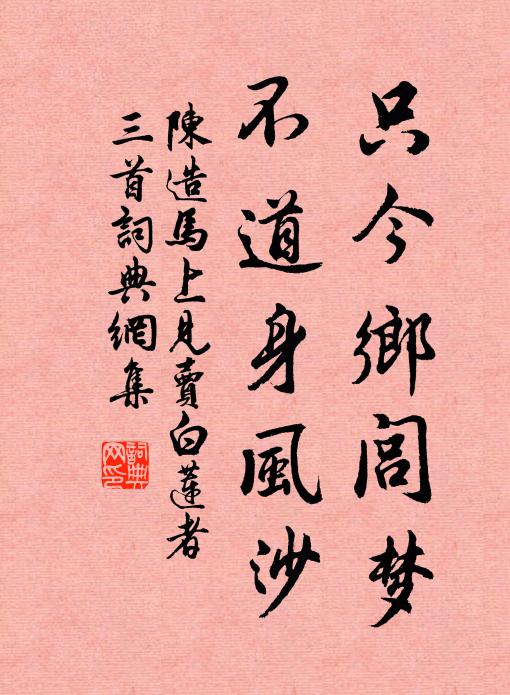 只今鄉閭梦
不道身風沙
陳造馬上見賣白蓮者
三首詞典網集
詞典网印